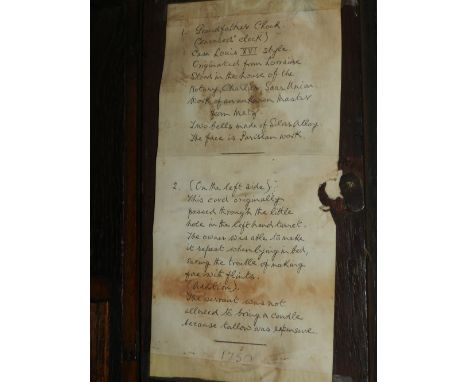 1. Grandfather Clock.
Case Louis XVI style.
Originated from Lorraine
Stood in the house of the
Notary, Charlier, Saar Union
Work of an unknown master
from Metz
Two bells made of Silver Alloy
The face is Parisian work.
2. (On the left side):
This cord originally
passed through the little
hole in the left hand turret.
The owner was able to make
it repeat when lying in bed,
saving the trouble of making
fire with flints.
(Addition).
The servant was not
allowed to bring a candle
because tallow was expensive
1750